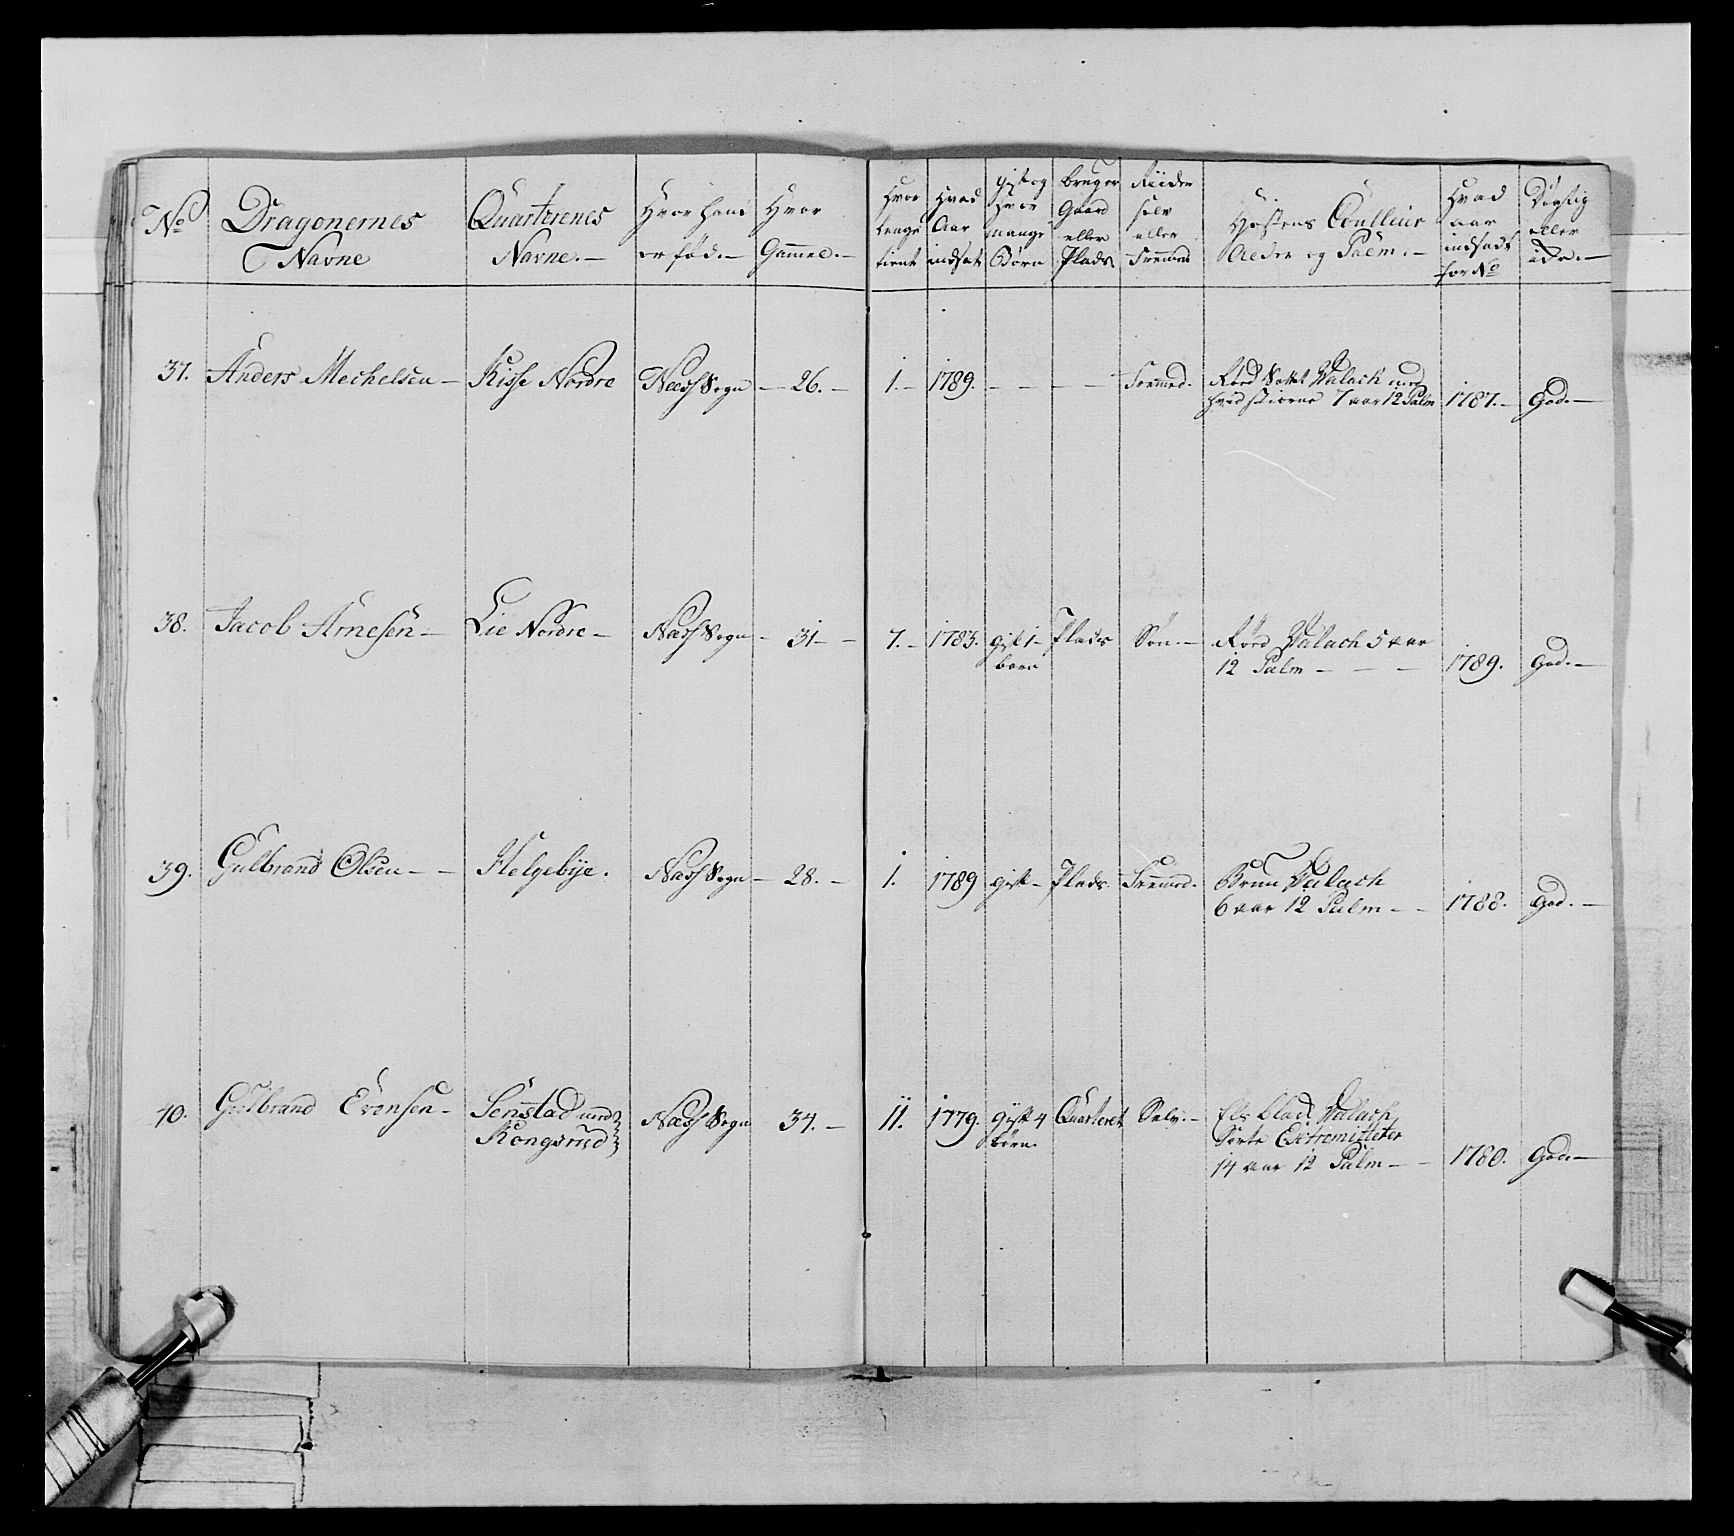 No Dragonernes Navne Quarterenes Navne. Hvor hand er föd. Hvor Gammel. Hvor lenge tient Hvad Aar indsat gift og hvor mange Börn bruger Gaard eller Plads Riider selv eller fremmed Hæstens Couleur Alder og Palm. Hvad aar indsadt for No Dygtig eller ide.
37. Anders Mechelsen Kisse Nordre Næss Sogn 26. 1. 1789. Fremmed. Röd Valach med 1787. God.
hvid stierne 7 aar 12 Palm
38. Jacob Arnesen Lie Nordre Næss Sogn 31 7. 1783. gift 1 Plads Sön Röd Valach 5 aar
barn 12 Palm 1789. God.
39. Gulbrand Olsen Helgebye. Næss Sogn 28. 1. 1789 gift Plads Fremmed. Brun Valach
6 aar 12 Palm 1788. God.
40. Gulbrand Evensen Senstad med Næss Sogn 34. 11. 1779. gift 4 Quarteret Selv. Valach
Kongsrud börn. Sorte Extremiteter
14 aar 12 Palm 1780. God